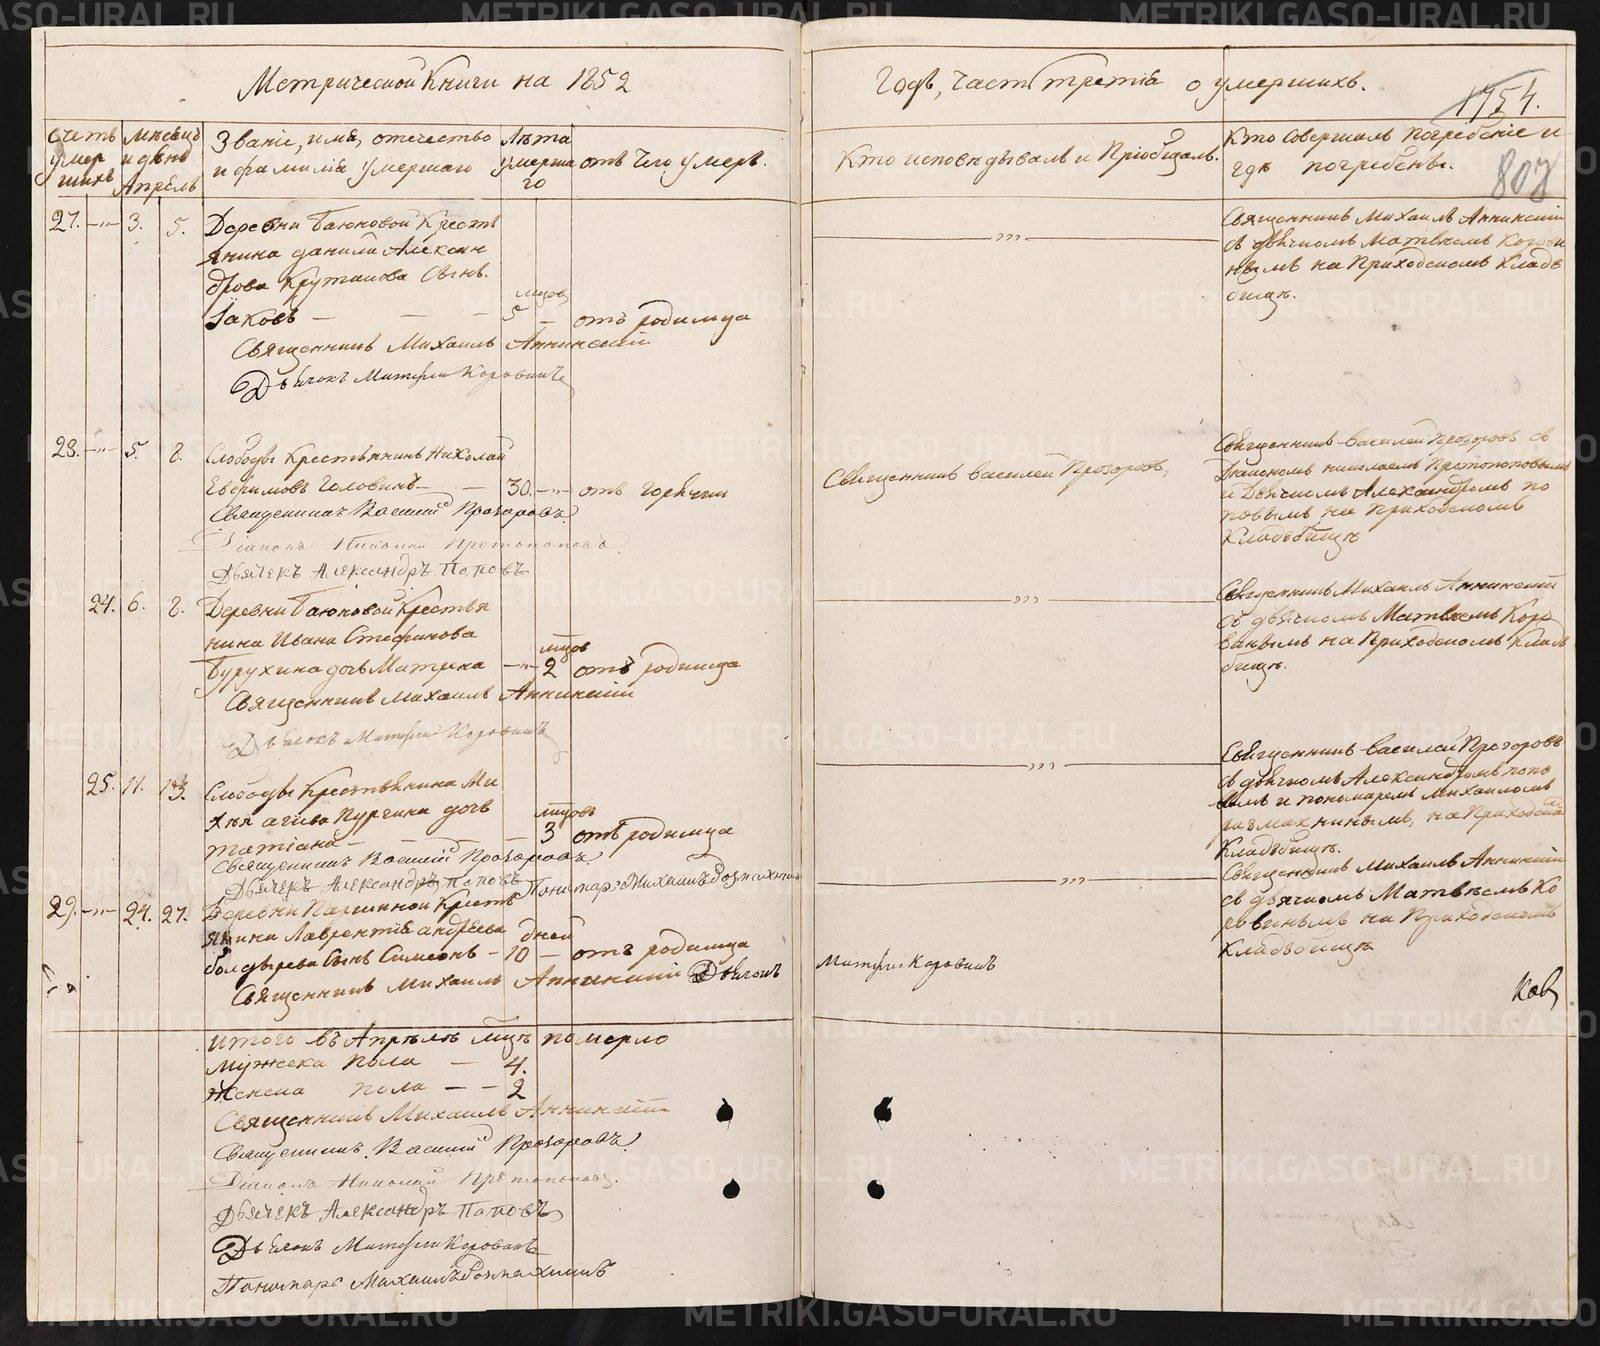 Метрической Книги на 1852
Годъ, часть третія о умершихъ.
1754.
807
Счетъ умершихъ
Мѣсяцъ и день
Апрѣль
Званіе, имя, отечество и фамилія умершаго
Лѣта умершаго
отъ чего умеръ.
Кто исповѣдывалъ и Пріобщалъ.
Кто совершалъ погребеніе и
гдѣ погребены.
27. — „ — 3. 5. Деревни Баюковой Кресть
янина Данила Алексан
дрова Крутакова Сынъ.
Іаковъ — — — 5 мцов — отъ родимца
Священникъ Михаилъ Аннинскій
Дьячекъ Матфей Коровинъ
Священникъ Михаилъ Аннинскій
съ дьячкомъ Матвѣемъ Корови
нымъ на Приходскомъ Кладъ
бищѣ.
28. — „ — 5. 8. Слободы Крестьянинъ Николай
Евфимовъ Головинъ — — 30. — „ — отъ горячки
Священникъ Василій Прозоровъ
Діаконъ Николай Протопоповъ
Дьячекъ Александръ Поповъ
Священникъ Василей Прозоровъ,
Священникъ Василей Прозоровъ съ
Діакономъ Николаемъ Протопоповымъ
и Дьячкомъ Александромъ По
повымъ на Приходскомъ
Кладъбищѣ
24. 6. 8. Деревни Баюковой Крестья
нина Ивана Стефанова
Бурухина дочь Матрена — „ — 2 мцов отъ родимца
Священникъ Михаилъ Аннинскій
Дьячекъ Матфей Коровинъ
Священникъ Михаилъ Аннинскій
съ дьячкомъ Матвѣемъ Коро
винымъ на Приходскомъ Кладъ
бищѣ.
25. 11. 13. Слободы Крестьянина Ми
хѣя Пургина дочь
Татіана — — — — 3 мцовъ отъ родимца
Священникъ Василій Прозоровъ
Дьячекъ Александръ Поповъ Пономарь Михаилъ
Священникъ Василей Прозоровъ
съ дьячкомъ Александромъ Попо
вымъ и пономаремъ Михаиломъ
на Приходском
Кладъбищѣ.
29. — „ — 24. 27. Деревни Паршиной Кресть
янина Лаврентія Андреева
Болдырева Сынъ Симеонъ — 10 дней — отъ родимца
Священникъ Михаилъ Аннинскій Дьячокъ Матфей Коровинъ
Священникъ Михаилъ Аннинскій
съ дьячкомъ Матвѣемъ Ко
ровинымъ на Приходскомъ
Кладъбищѣ
Итого въ Апрѣлѣ мцѣ померло
Мужеска пола — 4.
Женска пола — — 2
Священникъ Михаилъ Аннинскій
Священникъ Василій Прозоровъ
Діаконъ Николай Протопоповъ
Дьячекъ Александръ Поповъ
Дьячекъ Матфей Коровинъ
Пономарь Михаилъ
METRIKI.GASO-URAL.RU